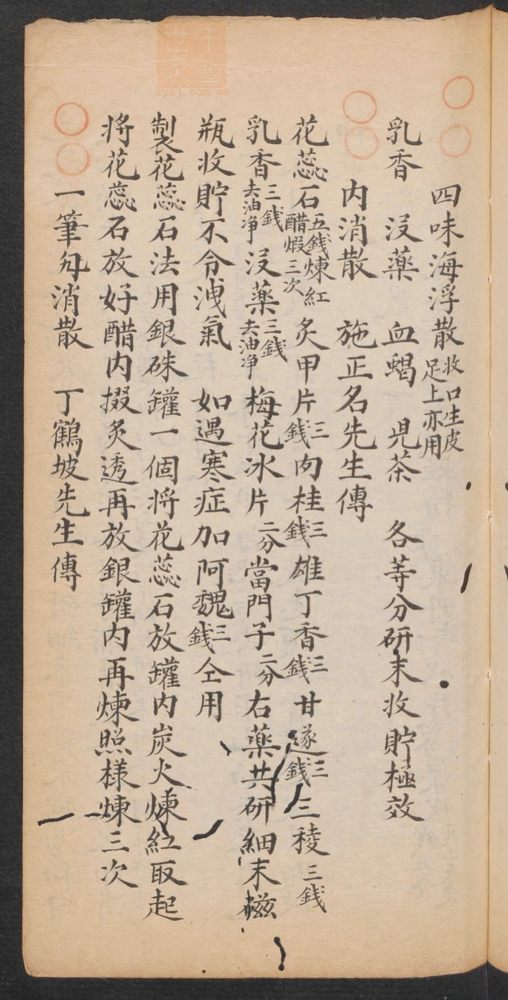 四味海浮散 收口生皮足上亦用
乳香 沒藥 血蝎 児茶 各等分研末收貯極效
内消散 施正名先生傳
花蕊石五錢煉紅醋煆三次 炙甲片三錢 肉桂三錢 雄丁香三錢 甘遂三錢 三稜三錢
乳香三錢去油净 沒藥三錢去油净 梅花冰片二分 當門子二分 右藥共研細末磁
瓶收貯不令洩氣 如遇寒症加阿魏三錢仝用
製花蕊石法用銀硃罐一個將花蕊石放罐内炭火煉紅取起
將花蕊石放好醋内掇炙透再放銀罐内再煉照樣煉三次
一筆勾消散 丁鶴坡先生傳